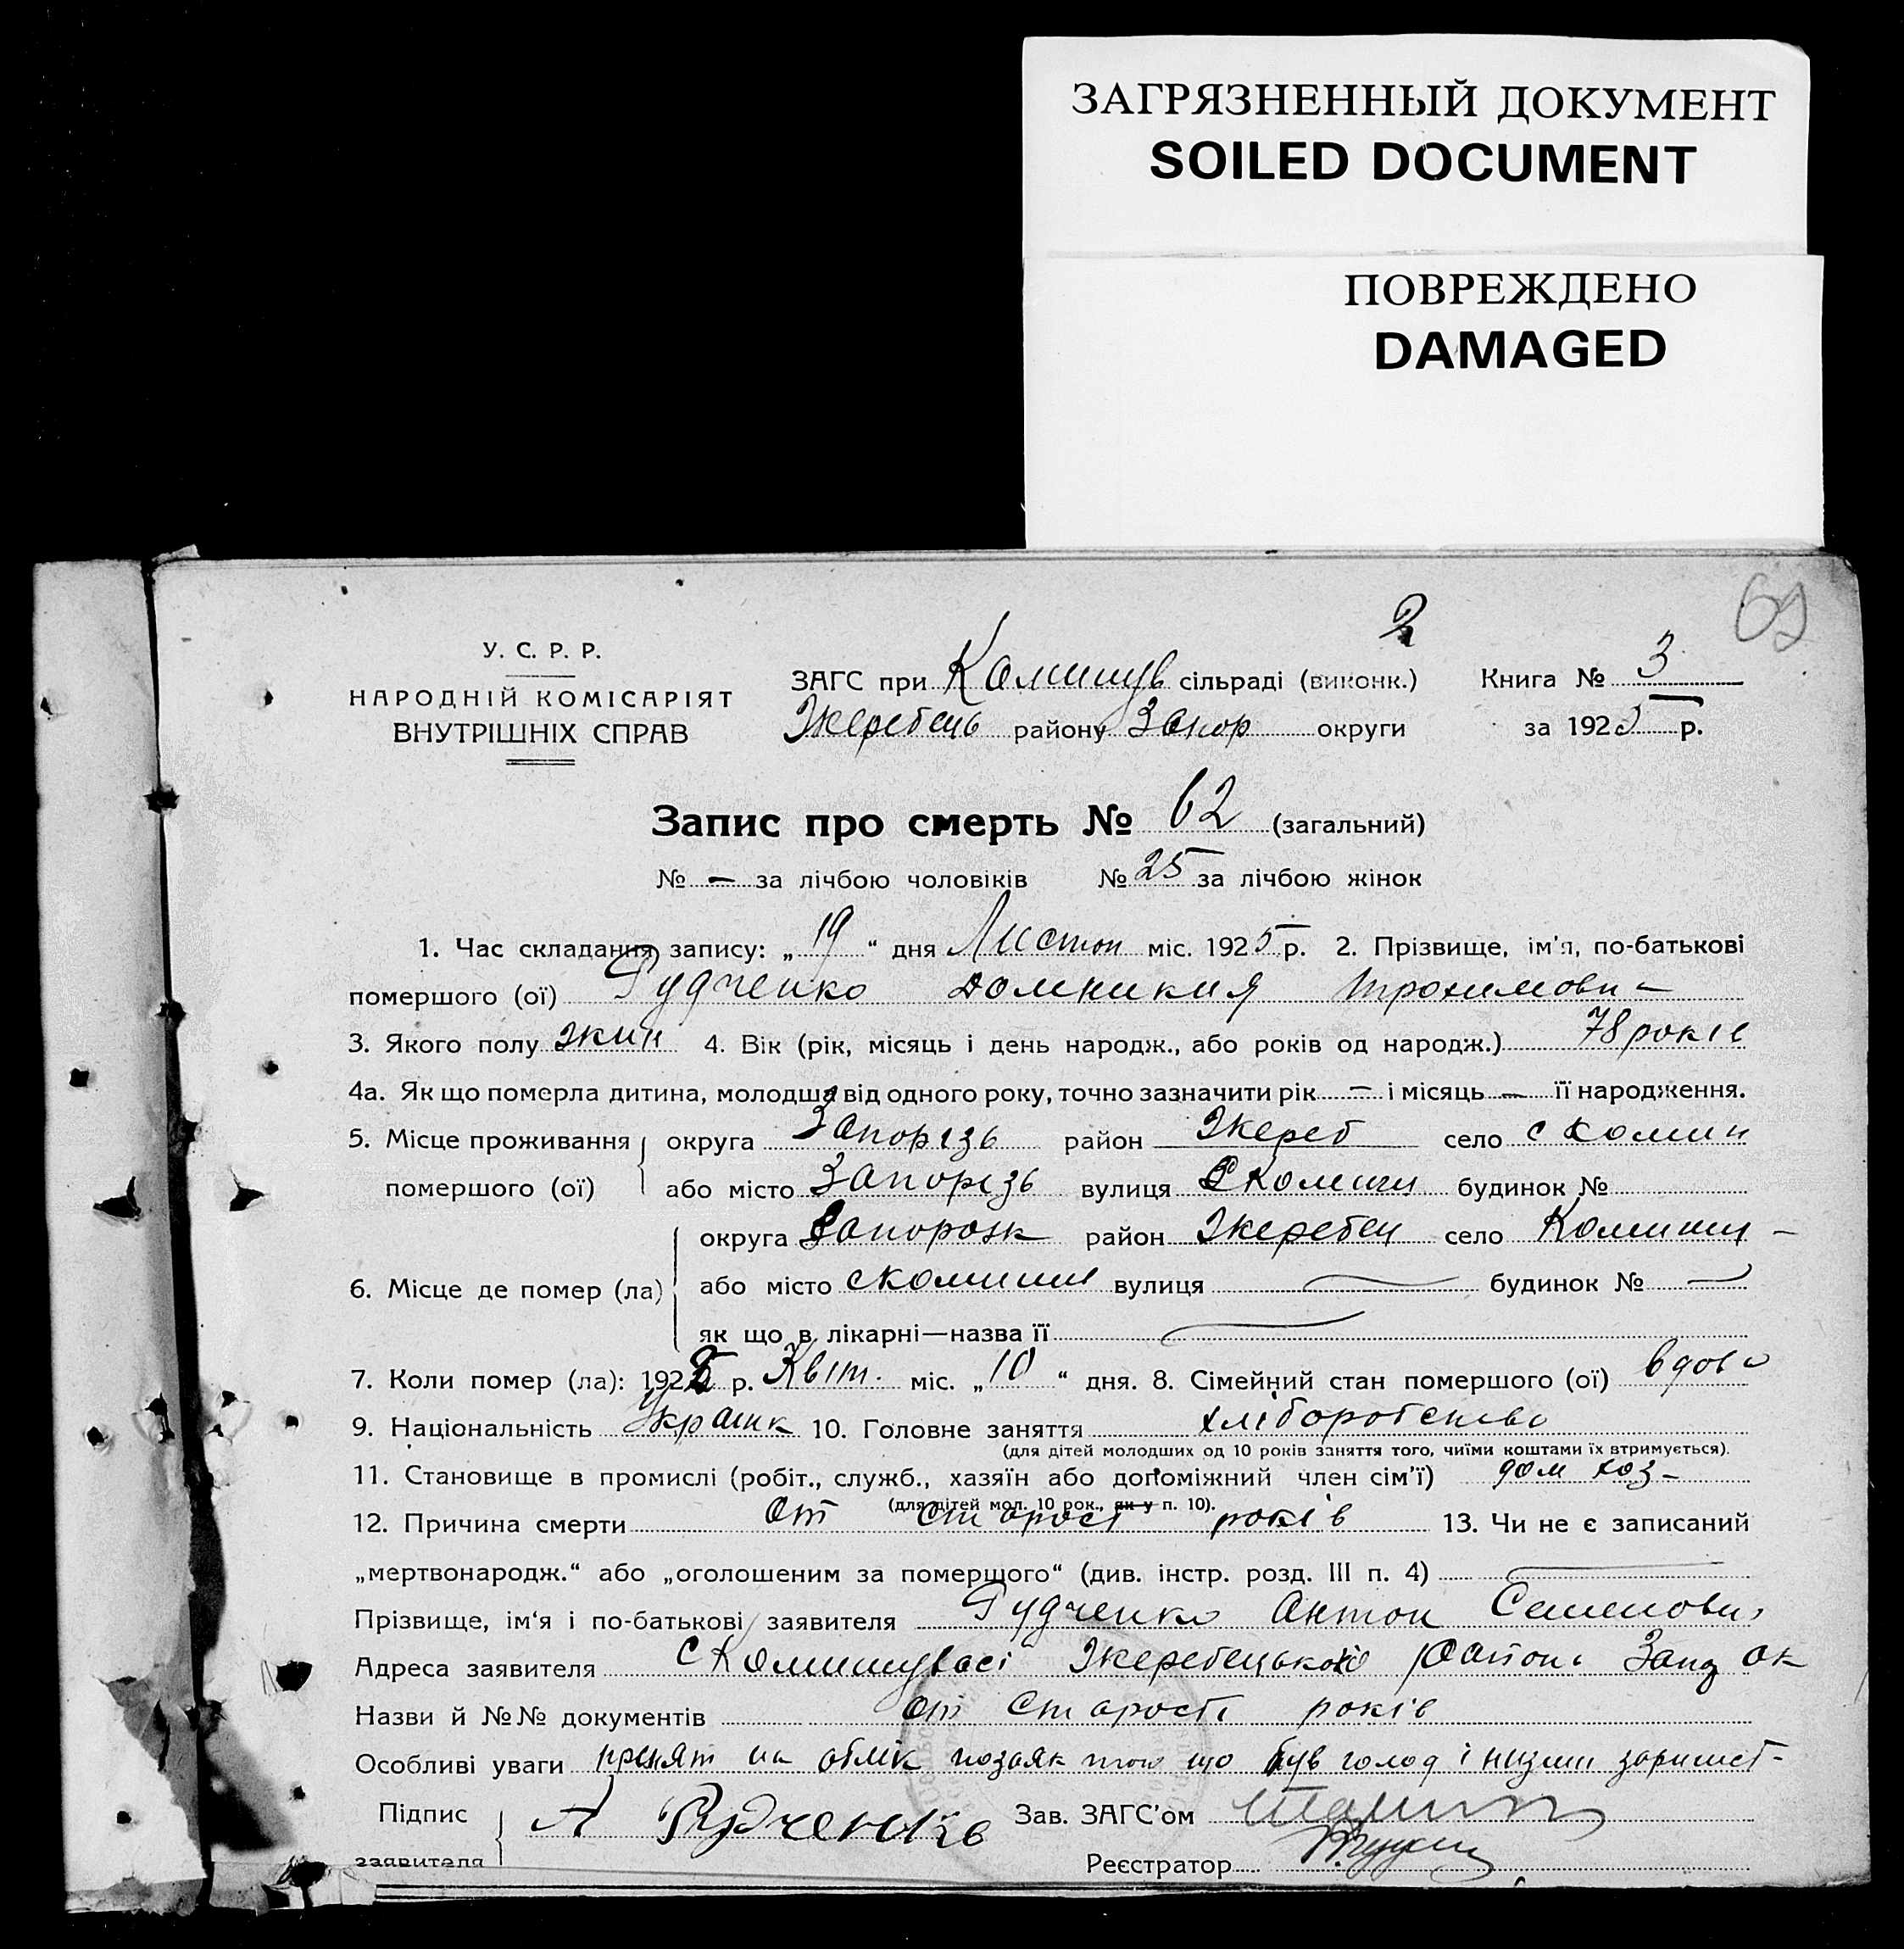 ЗАГРЯЗНЕННЫЙ ДОКУМЕНТ
SOILED DOCUMENT
ПОВРЕЖДЕНО
DAMAGED
69
2
У. С. Р. Р.
НАРОДНІЙ КОМІСАРІЯТ
ВНУТРІШНІХ СПРАВ
ЗАГС при Комишув сільраді (виконк.)
Жеребець району Запор округи
Книга № 3
за 1925 р.
Запис про смерть № 62 (загальний)
№ — за лічбою чоловіків № 25 за лічбою жінок
1. Час складання запису: „ 19 “ дня Листоп міс. 1925 р. 2. Прізвище, ім'я, по-батькові
помершого (ої) Рудченко Домникия Трохимовн
3. Якого полу жин 4. Вік (рік, місяць і день народж., або років од народж.) 78 років
4а. Як що померла дитина, молодша від одного року, точно зазначити рік — і місяць — її народження.
5. Місце проживання округа Запорізь район Жереб село с Комиш
помершого (ої) або місто Запорізь вулиця Скомиш будинок №
округа Запорозк район Жеребец село Комиш —
6. Місце де помер (ла) або місто с комиши вулиця — будинок № —
як що в лікарні—назва її —
7. Коли помер (ла): 192 р. Квіт. міс. „ 10 “ дня. 8. Сімейний стан помершого (ої) вдова
9. Національність Украінк 10. Головне заняття хліборобство
(для дітей молодших од 10 років заняття того, чиїми коштами їх втримується).
11. Становище в промислі (робіт., служб., хазяїн або допоміжний член сім'ї) дом хоз —
(для дітей мол. 10 рок., як у п. 10).
12. Причина смерти от старост років 13. Чи не є записаний
„мертвонародж.“ або „оголошеним за померщого“ (див. інстр. розд. III п. 4) —
Прізвище, ім'я і по-батькові заявителя Рудченко Антон Семенович
Адреса заявителя с Комишувасі Жеребецького району Запор ок
Назви й №№ документів от старости років
Особливі уваги принят на облік позаяк того що був голод і
Підпис
заявителя А Рудченко
Зав. ЗАГС'ом
Реєстратор